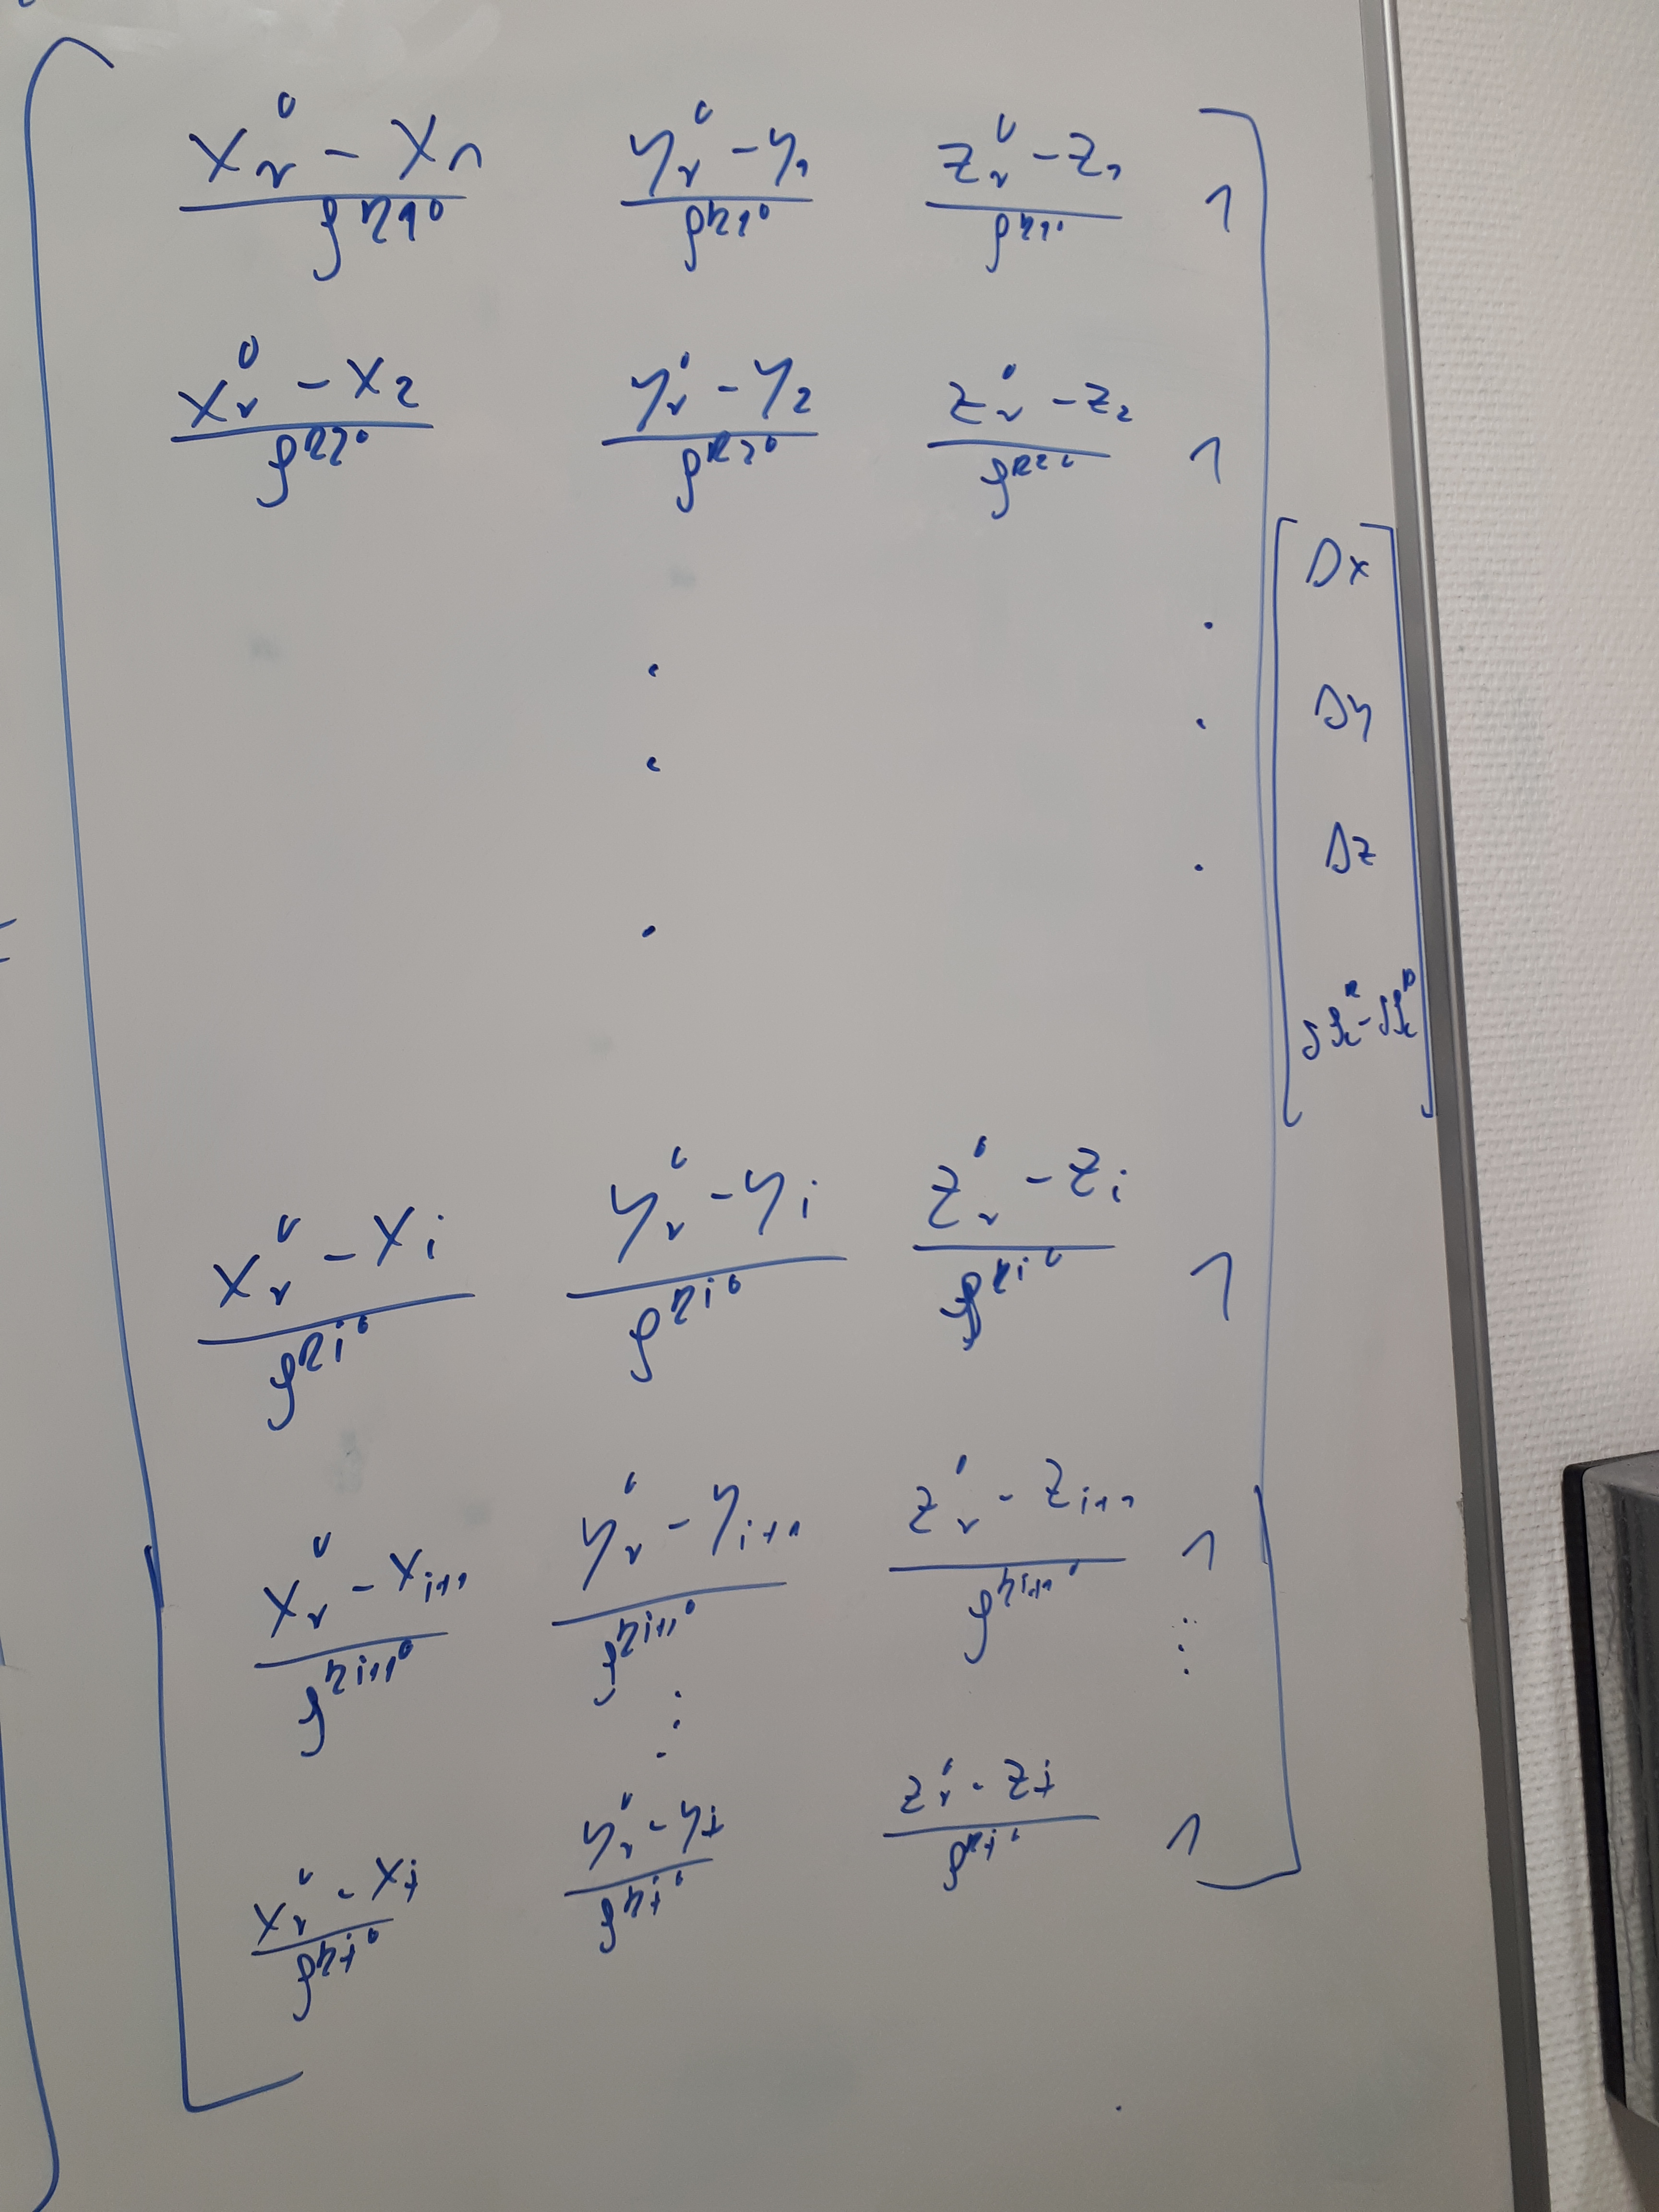 \frac{x_r^0 - x_1}{\rho^{R1^0}} \frac{y_r^0 - y_1}{\rho^{R1^0}} \frac{z_r^0 - z_1}{\rho^{R1^0}} 1
\frac{x_r^0 - x_2}{\rho^{R2^0}} \frac{y_r^0 - y_2}{\rho^{R2^0}} \frac{z_r^0 - z_2}{\rho^{R2^0}} 1
Δx
Δy
Δz
\frac{x_r^0 - x_i}{\rho^{Ri^0}} \frac{y_r^0 - y_i}{\rho^{Ri^0}} \frac{z_r^0 - z_i}{\rho^{Ri^0}} 1
\frac{x_r^0 - x_{i+1}}{\rho^{Ri+1^0}} \frac{y_r^0 - y_{i+1}}{\rho^{Ri+1^0}} \frac{z_r^0 - z_{i+1}}{\rho^{Ri+1^0}} 1
\frac{x_r^0 - x_j}{\rho^{Rj^0}} \frac{y_r^0 - y_j}{\rho^{Rj^0}} \frac{z_r^0 - z_j}{\rho^{Rj^0}} 1